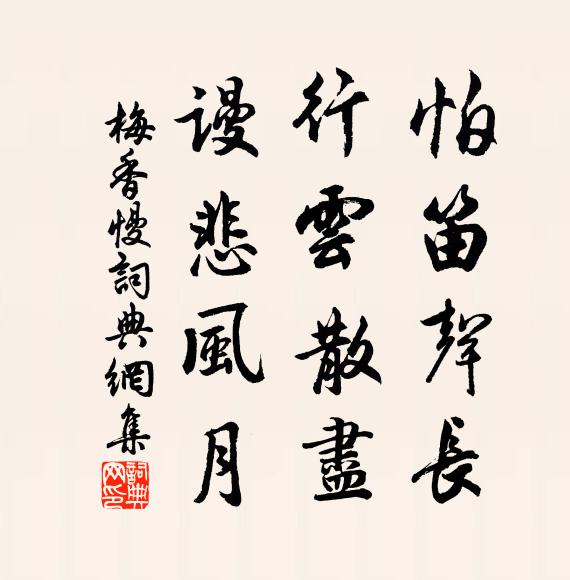 怕笛聲長
行雲散盡
謾悲風月
梅香慢詞典網集
詞典网印